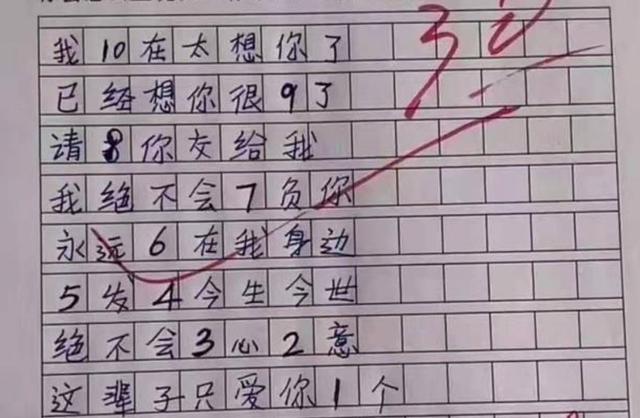 我10在太想你了
已经想你很9了
请8你交给我
我绝不会7负你
永远6在我身边
5发4今生今世
绝不会3心2意
这辈子只爱你1个